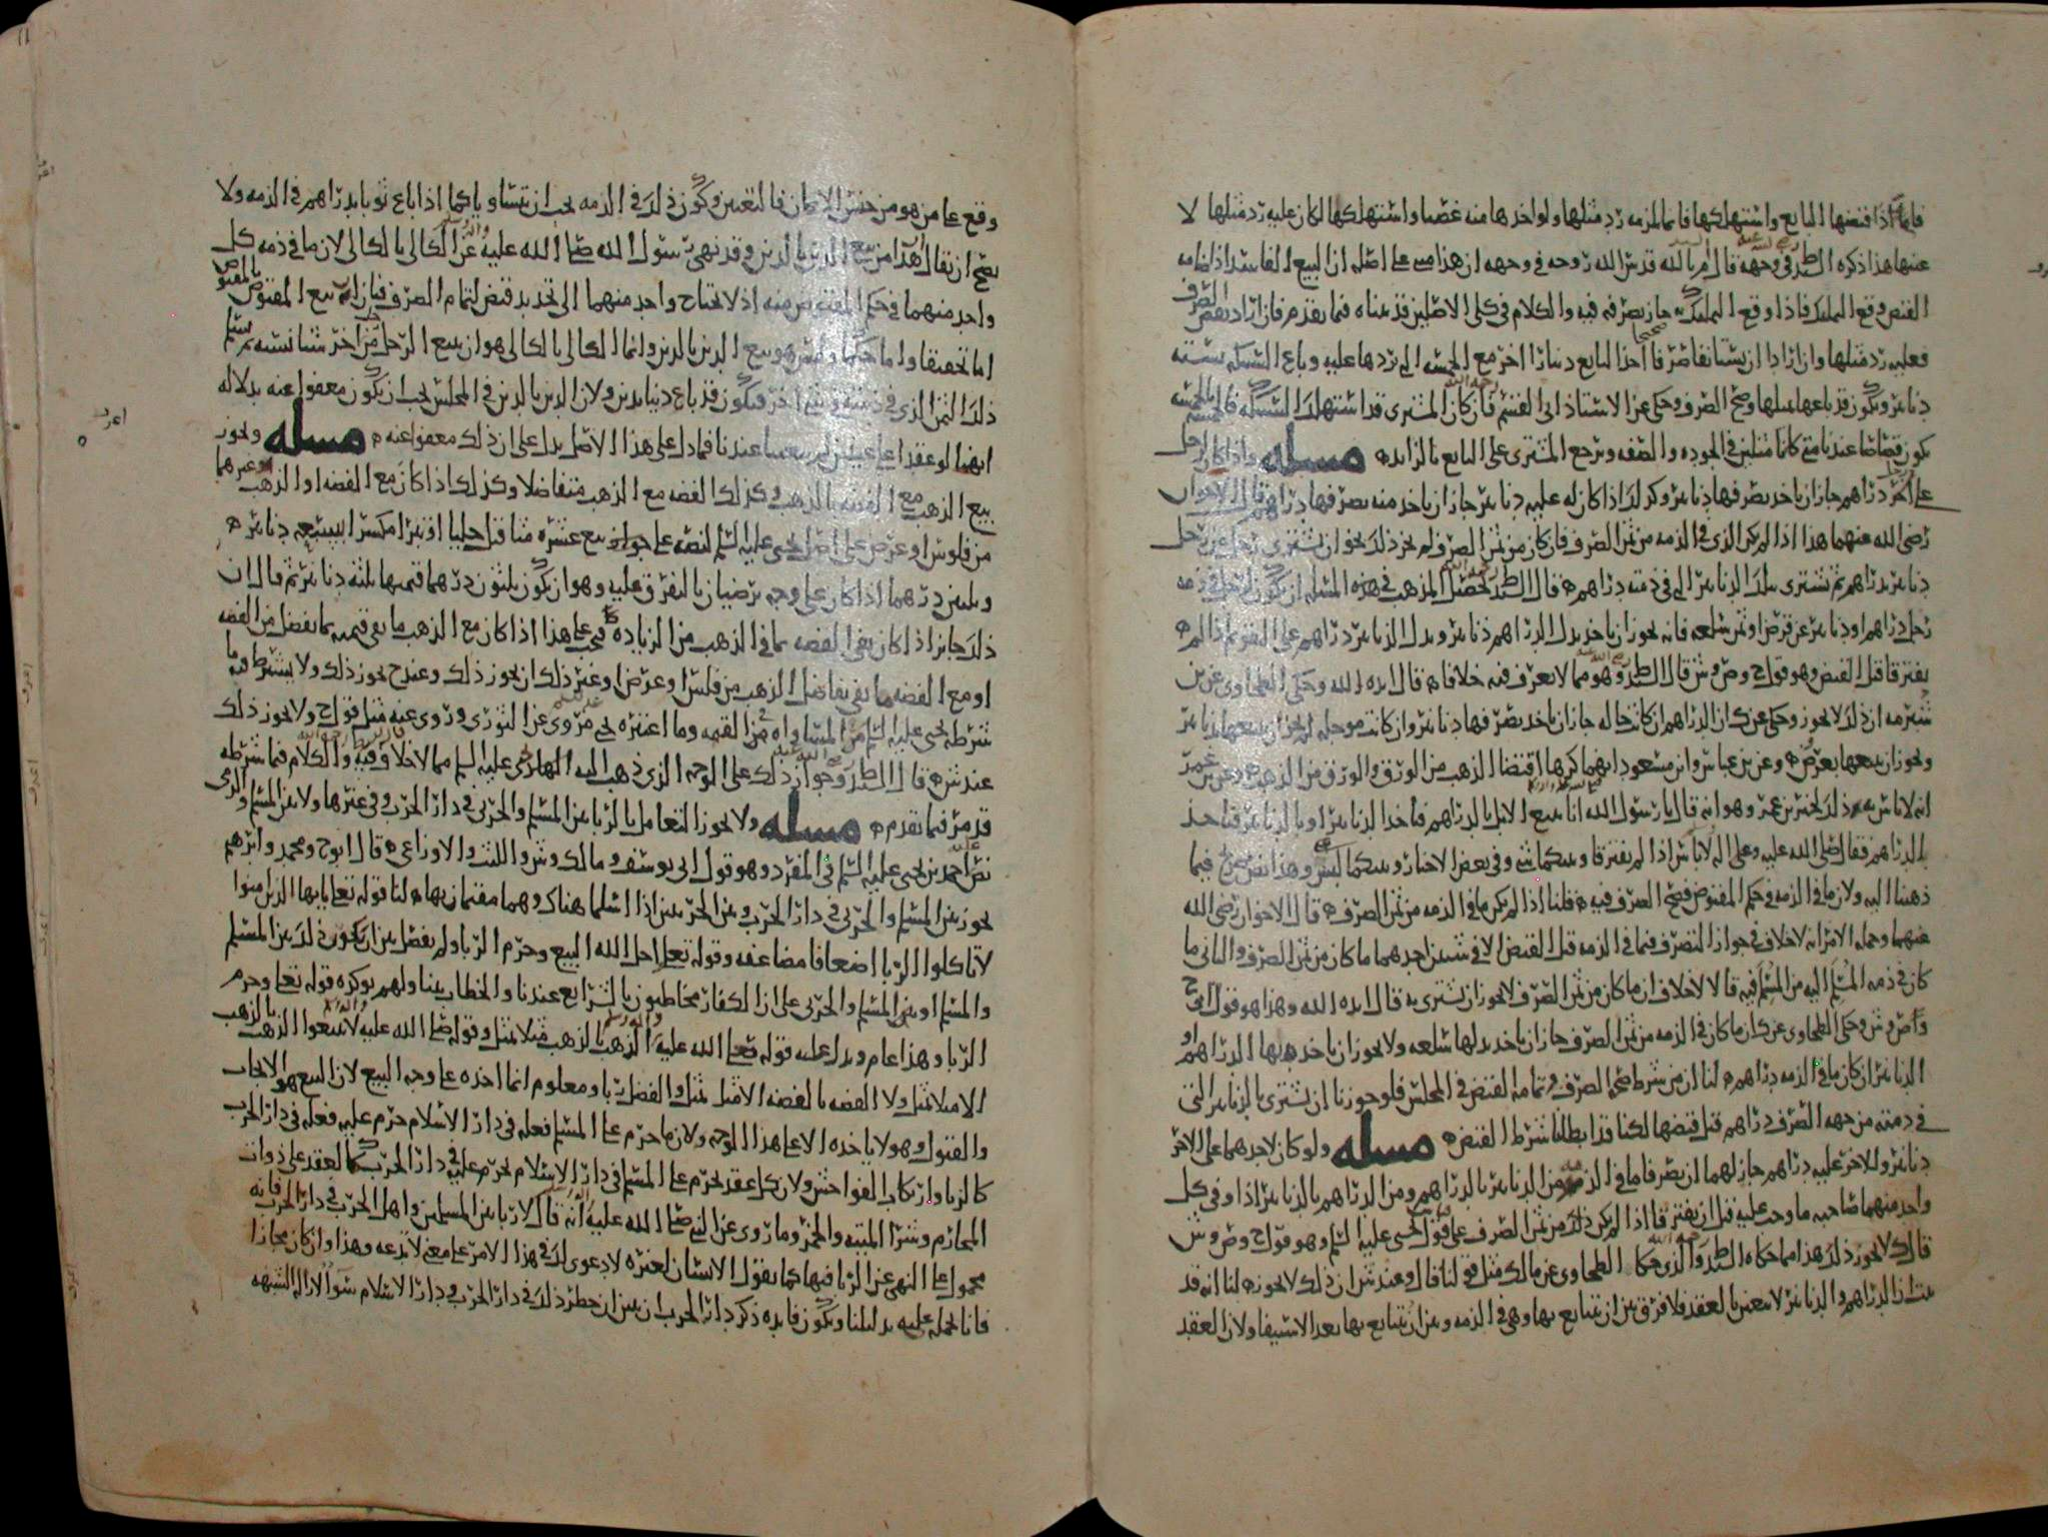 فاما اذا قبضها البايع واستهلكها فانما يلزمه رد مثلها ولو اخذها منه غصبا واستهلكها لكان عليه رد مثلها لا
عنها هذا ذكره الط في وجهه قال م بالله قدس الله روحه في وجهه ان هذا مبني على اصله ان البيع الفاسد اذا ضامه
القبض وقع الملك فاذا وقع الملك جاز تصرفه فيه والكلام في كلي الاصلين قد بيناه فيما تقدم فان اراد نقض الصرف
فعليه رد مثلها وان ارادا ان يتقاصا صح فا اخذ البايع دينارا اخر مع الخمسة التي يردها عليه وباع السبيكة بستة
دنانير ويكون قد باعها بمثلها وصح الصرف وحكى عن الاستاذ ابي القسم رحمه الله فان كان المشتري قد استهلك السبيكة فالخمسة بالخمسة
يكون قصاصا عندنا متى كانا مثلين في الجودة والصفة ويرجع المشتري على البايع بالزايد ه مسله واذا كان لرجل
على اخر دراهم جاز ان ياخذ بصرفها دنانير وكذلك اذا كان له عليه دنانير جاز ان ياخذ منه بصرفها دراهم قال الاخوان
رضي الله عنهما هذا اذا لم يكن الذي في الذمة من ثمن الصرف فان كان من ثمن الصرف لم يجز ذلك نحو ان يشتري رجل من رجل
دنانير بدراهم ثم يشتري بتلك الدنانير التي في ذمته دراهم ه قال الط تحصيل المذهب في هذه المسلة ان يكون لرجل في ذمة
رجل دراهم او دنانير عن قرض او ثمن سلعة فانه يجوز ان ياخذ بدل الدراهم دنانير وبدل الدنانير دراهم على الفور اذا لم
يفترقا قبل القبض وهو قول ح وص و ش قال الط وهو مما لا يعرف فيه خلاف ه قال ايده الله وحكى الطحاوي عن بن
شبرمة ان ذلك لا يجوز وحكى عن ك ان الدراهم ان كانت حالة جاز ان ياخذ بصرفها دنانير وان كانت موجلة لم يجز ان يبيعها بدنانير
ويجوز ان يبيعها بعرض ه وعن بن عباس وابن مسعود انهما كرها اقتضا الذهب من الورق والورق من الذهب وعن بن عمر
انه لا باس به ذلك لخبر بن عمر وهو انه قال يا رسول الله انا نبيع الابل بالدراهم فناخذ الدنانير او بالدنانير فناخذ
بالدراهم فقال صلى الله عليه وعلى اله لا باس اذا لم تفترقا وبينكما شي وفي بعض الاخبار وبينكما لبس وهذا نص صريح فيما
ذهبنا اليه ولان ما في الذمة في حكم المقبوض فصح الصرف فيه ه قلنا اذا لم يكن ما في الذمة من ثمن الصرف ه قال الاخوان رضي الله
عنهما وجملة الامر انه لا خلاف في جواز التصرف فيما في الذمة قبل القبض الا في شيين احدهما ما كان من ثمن الصرف والثاني ما
كان في ذمة المسلم اليه من المسلم فيه قالا لا خلاف ان ما كان من ثمن الصرف لا يجوز ان يشترى به قال ايده الله وهذا هو قول ابي ح
و ص و ش وحكى الطحاوي عن ك ان ما كان في الذمة من ثمن الصرف جاز ان ياخذ بدلها سلعة ولا يجوز ان ياخذ بدلها الدراهم او
الدنانير ان كان ما في الذمة دراهم ه لنا ان من شرط صحة الصرف وتمامه القبض في المجلس فلو جوزنا ان يشترى بالدنانير التي
في ذمته من جهة الصرف دراهم قبل قبضها لكنا قد ابطلنا شرط القبض ه مسله ولو كان لاحدهما على الاخر
دنانير وللاخر عليه دراهم جاز لهما ان يصرفا ما في الذمة من الدنانير بالدراهم ومن الدراهم بالدنانير اذا وفى كل
واحد منهما صاحبه ما وجب عليه قبل ان يفترقا اذا لم يكن ذلك من ثمن الصرف على قول يحيى عليه السلم وهو قول ح وص و ش
قال ك لا يجوز ذلك هذا مما حكاه الط والذي حكى الطحاوي عن مالك مثل قولنا قال وعند ش ان ذلك لا يجوز ه لنا انه قد
ثبت ان الدراهم والدنانير لا تتعين بالعقد فلا فرق بين ان يتبايع بها وهي في الذمة وبين ان يتبايع بها بعد الاستيفا ولان العقد
وقع على ما هو من جنس الاثمان فالتعين وكون ذلك في الذمة يجب ان يتساويا كما اذا باع ثوبا بدراهم في الذمة ولا
يصح ان يقال هذا من بيع الدين بالدين وقد نهى رسول الله صلى الله عليه واله عن الكالي بالكالي لان ما في ذمة كل
واحد منهما في حكم المقبوض منه اذ لا يحتاج واحد منهما الى تجديد قبض لتمام الصرف فبان انه بيع المقبوض بالمقبوض
اما تحقيقا واما حكما وليس هو بيع الدين بالدين وانما الكالي بالكالي هو ان يبيع الرجل من اخر شيا نسية ثم يسلم
ذلك الثمن الذي في ذمته في شي اخر فيكون قد باع دينا بدين ولان الدين بالدين في المجلس يجب ان يكون معفوا عنه بدلالة
انهما لو عقدا على عينين لم يتعينا عندنا فما دل على هذا الاصل يدل على ان ذلك معفو عنه ه مسله ويجوز
بيع الذهب مع الفضة بالذهب وكذلك الفضة مع الذهب متفاضلا وكذلك اذا كان مع الفضة او الذهب غيرهما
من فلوس او عرض على اصل يحيى عليه السلم لنصه على جواز بيع عشرة مثاقيل حليا او تبرا مكسرا بسبعة دنانير ه
وثلثين درهما اذا كان على وجه يرضيان بالتفرق عليه وهو ان يكون ثلثون درهما قيمتها ثلثة دنانير ثم قال ان
ذلك جايز اذا كان يفي الفضة بما في الذهب من الزيادة فيجي على هذا اذا كان مع الذهب ما يفي قيمته بما يفضل من الفضة
او مع الفضة ما يفي بفاضل الذهب من فلس او عرض او غير ذلك ان يجوز ذلك وعند ح يجوز ذلك ولا يشترط فيه ما
شرطه يحيى عليه السلم من المساواة من القيمة وما اعتبره يحيى مروي عن الثوري وروي عنه مثل قول ح ولا يجوز ذلك
عند ش ه قال الط وجواز ذلك على الوجه الذي ذهب اليه الهادي عليه السلم مما لا خلاف فيه والكلام فيما شرطه
قد مر فيما تقدم ه مسله ولا يجوز التعامل بالربا بين المسلم والحربي في دار الحرب وفي غيرها ولا بين المسلم والذمي
نص احمد بن يحيى عليه السلم في المفرد وهو قول ابي يوسف ومالك و ش والليث والاوزاعي ه قال ابو ح ومحمد وابرهم
يجوز بين المسلم والحربي في دار الحرب وبين الحربيين اذا اسلما هناك وهما مقيمان بها ه لنا قوله تعلى يا ايها الذين امنوا
لا تاكلوا الربا اضعافا مضاعفة وقوله تعلى احل الله البيع وحرم الربا ولم يفصل بين ان يكون ذلك بين المسلم
والمسلم او بين المسلم والحربي على ان الكفار مخاطبون بالشرايع عندنا والخطاب بيننا ولهم يوكده قوله تعلى وحرم
الربا وهذا عام ويدل عليه قوله صلى الله عليه واله الذهب بالذهب مثلا بمثل وقوله صلى الله عليه واله لا تبيعوا الذهب بالذهب
الا مثلا بمثل ولا الفضة بالفضة الا مثل بمثل والفضل ربا ومعلوم انما اخذه على وجه البيع لان البيع هو الايجاب
والقبول وهو لا ياخذه الا على هذا الوجه ولان ما حرم على المسلم فعله في دار الاسلام حرم عليه فعله في دار الحرب
كالزنا وارتكاب الفواحش ولان كل عقد يحرم على المسلم في دار الاسلام يحرم عليه في دار الحرب كالعقد على ذوات
المحارم وشرا الميتة والخمر وما روي عن النبي صلى الله عليه واله انه قال لا ربا بين المسلمين واهل الحرب في دار الحرب فانه
محمول على النهي عن الربا فيها كما يقول الانسان لغيره لا دعوى لك في هذا الامر على معنى لا تدعه وهذا وان كان مجازا
فانا نحمله عليه بدليلنا ويكون فايدة ذكر دار الحرب ان يبين ان حظر ذلك في دار الحرب ودار الاسلام سوا لازالة الشبهة